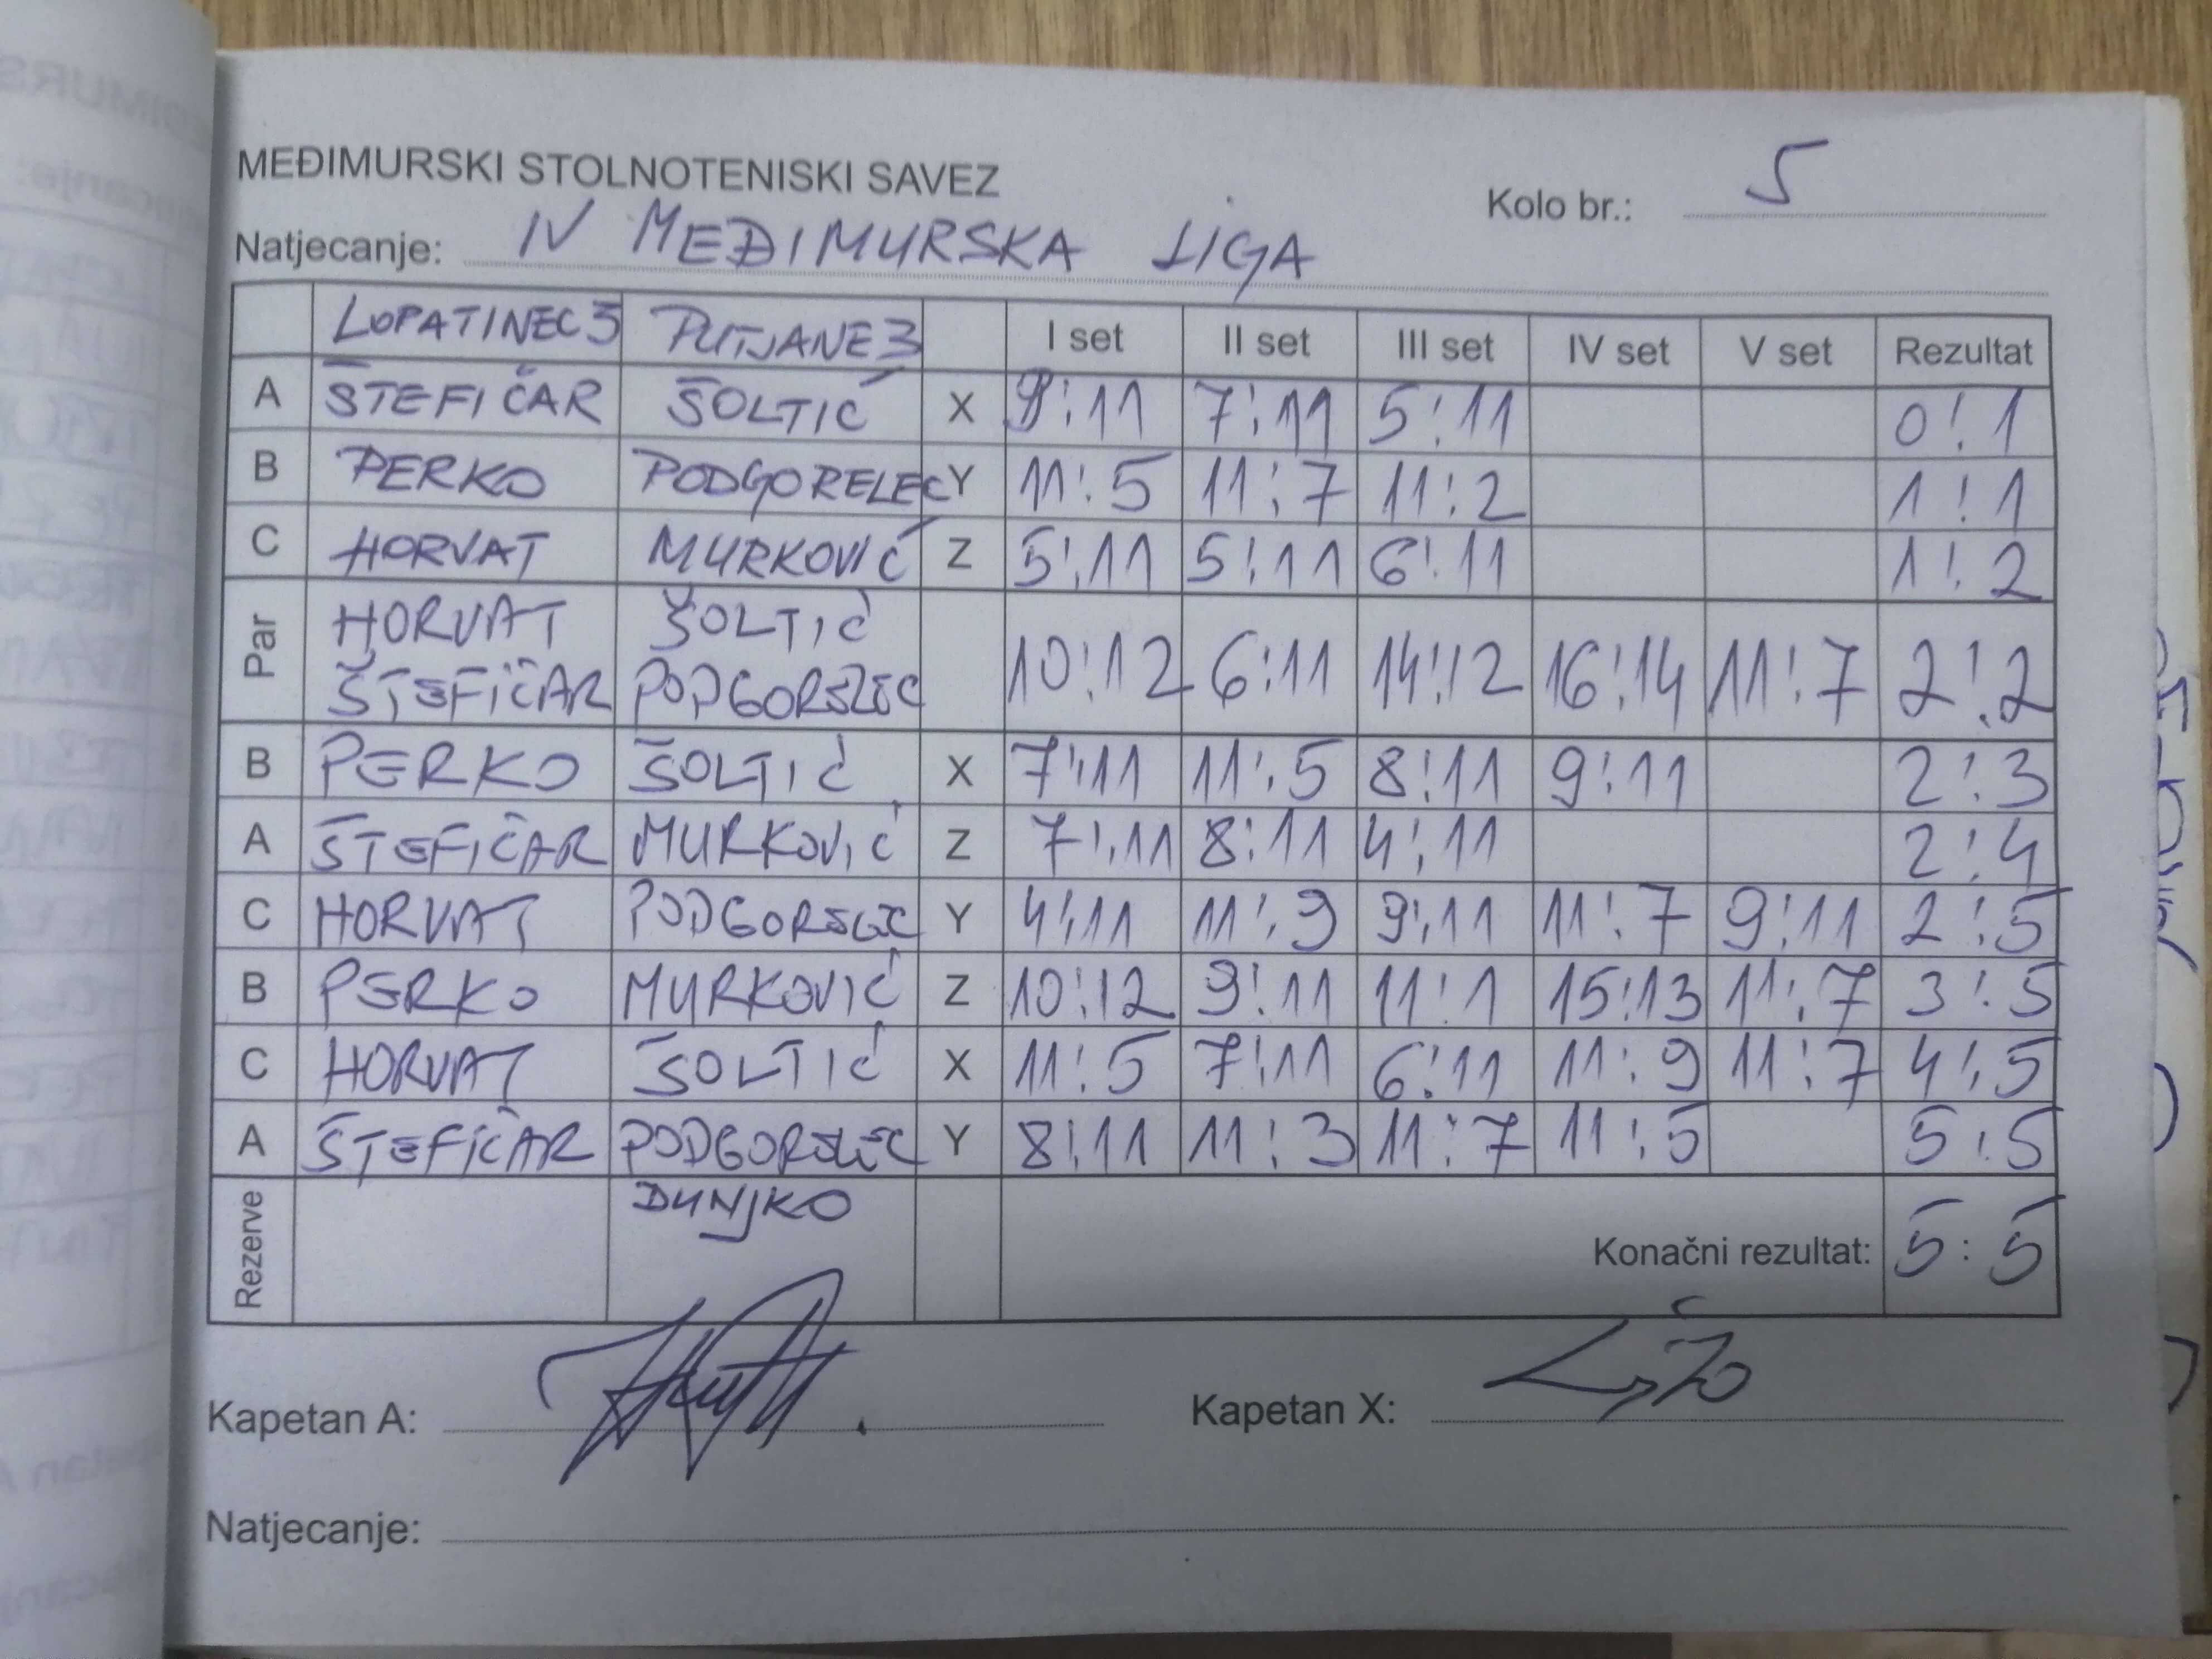 MEĐIMURSKI STOLNOTENISKI SAVEZ
Kolo br.: 5
Natjecanje: IV MEĐIMURSKA LIGA
LOPATINEC 3 PUTJANE 3 I set II set III set IV set V set Rezultat
A ŠTEFIČAR ŠOLTIĆ X 9:11 7:11 5:11 0:1
B PERKO PODGORELEC Y 11:5 11:7 11:2 1:1
C HORVAT MURKOVIĆ Z 5:11 5:11 6:11 1:2
Par HORVAT ŠOLTIĆ
ŠTEFIČAR PODGORELEC 10:12 6:11 14:12 16:14 11:7 2:2
B PERKO ŠOLTIĆ X 7:11 11:5 8:11 9:11 2:3
A ŠTEFIČAR MURKOVIĆ Z 7:11 8:11 4:11 2:4
C HORVAT PODGORELEC Y 4:11 11:9 9:11 11:7 9:11 2:5
B PERKO MURKOVIĆ Z 10:12 9:11 11:1 15:13 11:7 3:5
C HORVAT ŠOLTIĆ X 11:5 7:11 6:11 11:9 11:7 4:5
A ŠTEFIČAR PODGORELEC Y 8:11 11:3 11:7 11:5 5:5
Rezerve DUNJKO
Konačni rezultat: 5:5
Kapetan A:
Kapetan X:
Natjecanje: